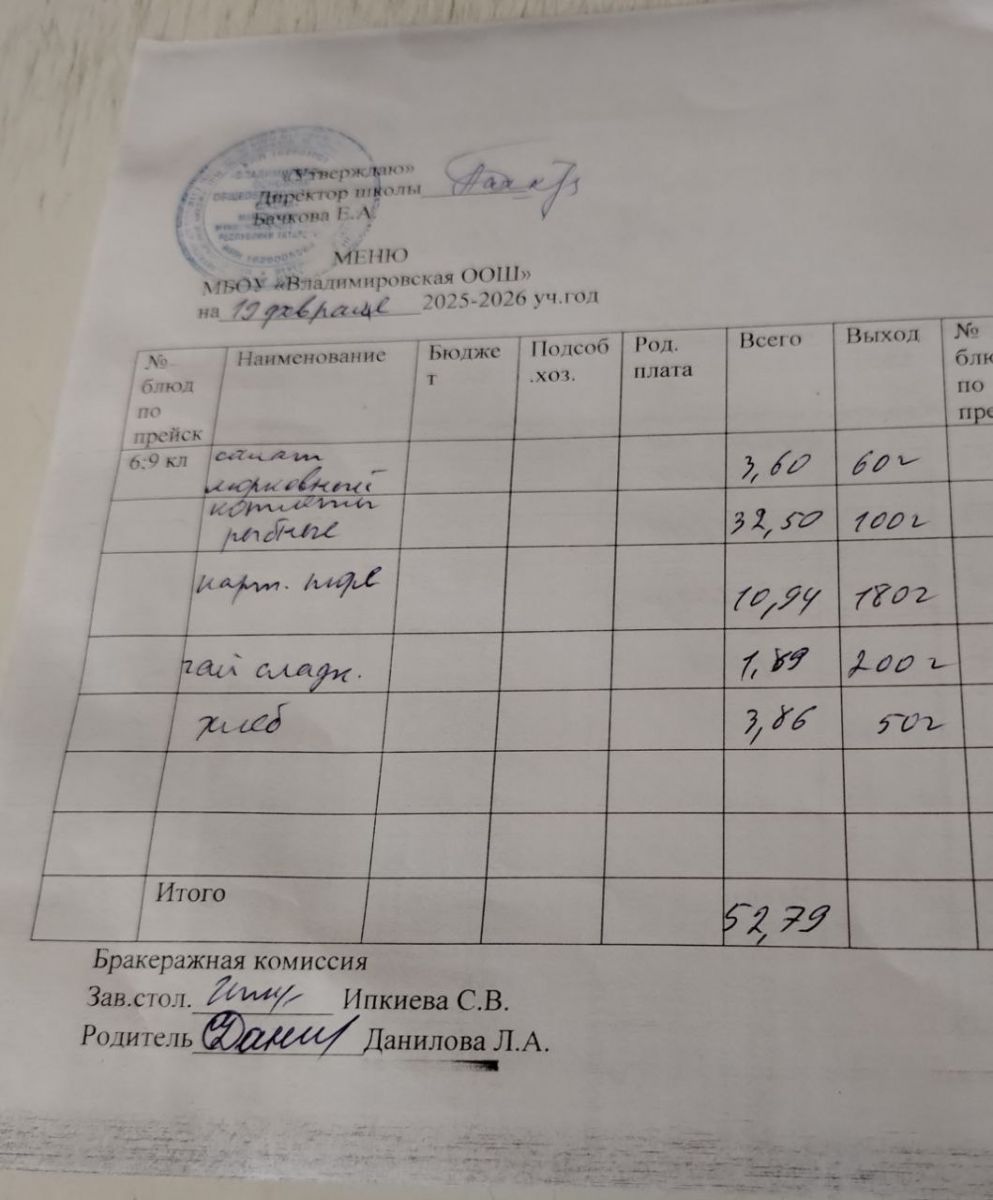 «Утверждаю»
Директор школы
Бачкова Е.А.
МЕНЮ
МБОУ «Владимировская ООШ»
на 19 февраля 2025-2026 уч.год
№ блюд по прейск Наименование Бюджет Подсоб.хоз. Род. плата Всего Выход № по
6:9 кл салат морковный 3,60 60г
котлеты рыбные 32,50 100г
карт. пюре 10,94 180г
чай сладк. 1,89 200г
хлеб 3,86 50г
Итого 52,79
Бракеражная комиссия
Зав.стол. Ипкиева С.В.
Родитель Данилова Л.А.